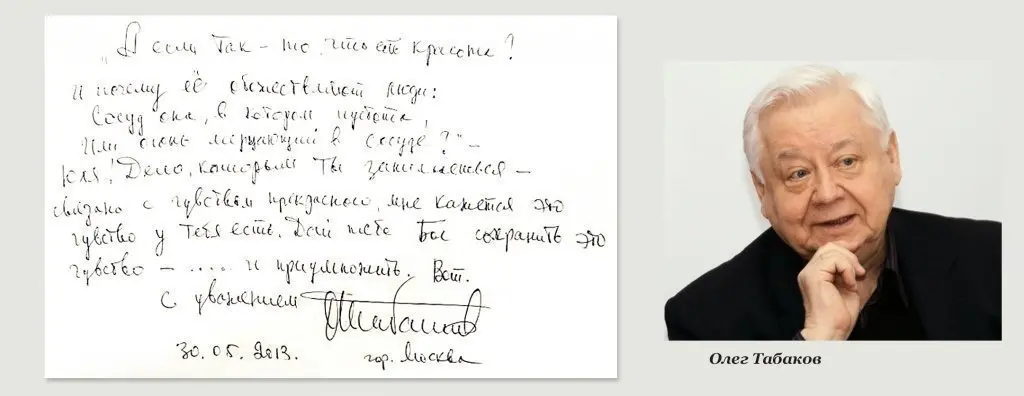 „А если так – то что есть красота?
И почему её обожествляют люди:
Сосуд она, в котором пустота,
Или огонь мерцающий в сосуде?" –
Юля! Дело, которым Ты занимаешься –
связано с чувством прекрасного, мне кажется это
чувство у тебя есть. Дай тебе Бог сохранить это
чувство – .... и приумножить. Вот.
С уважением ОТабаков
30.05.2013. гор. Москва
Олег Табаков